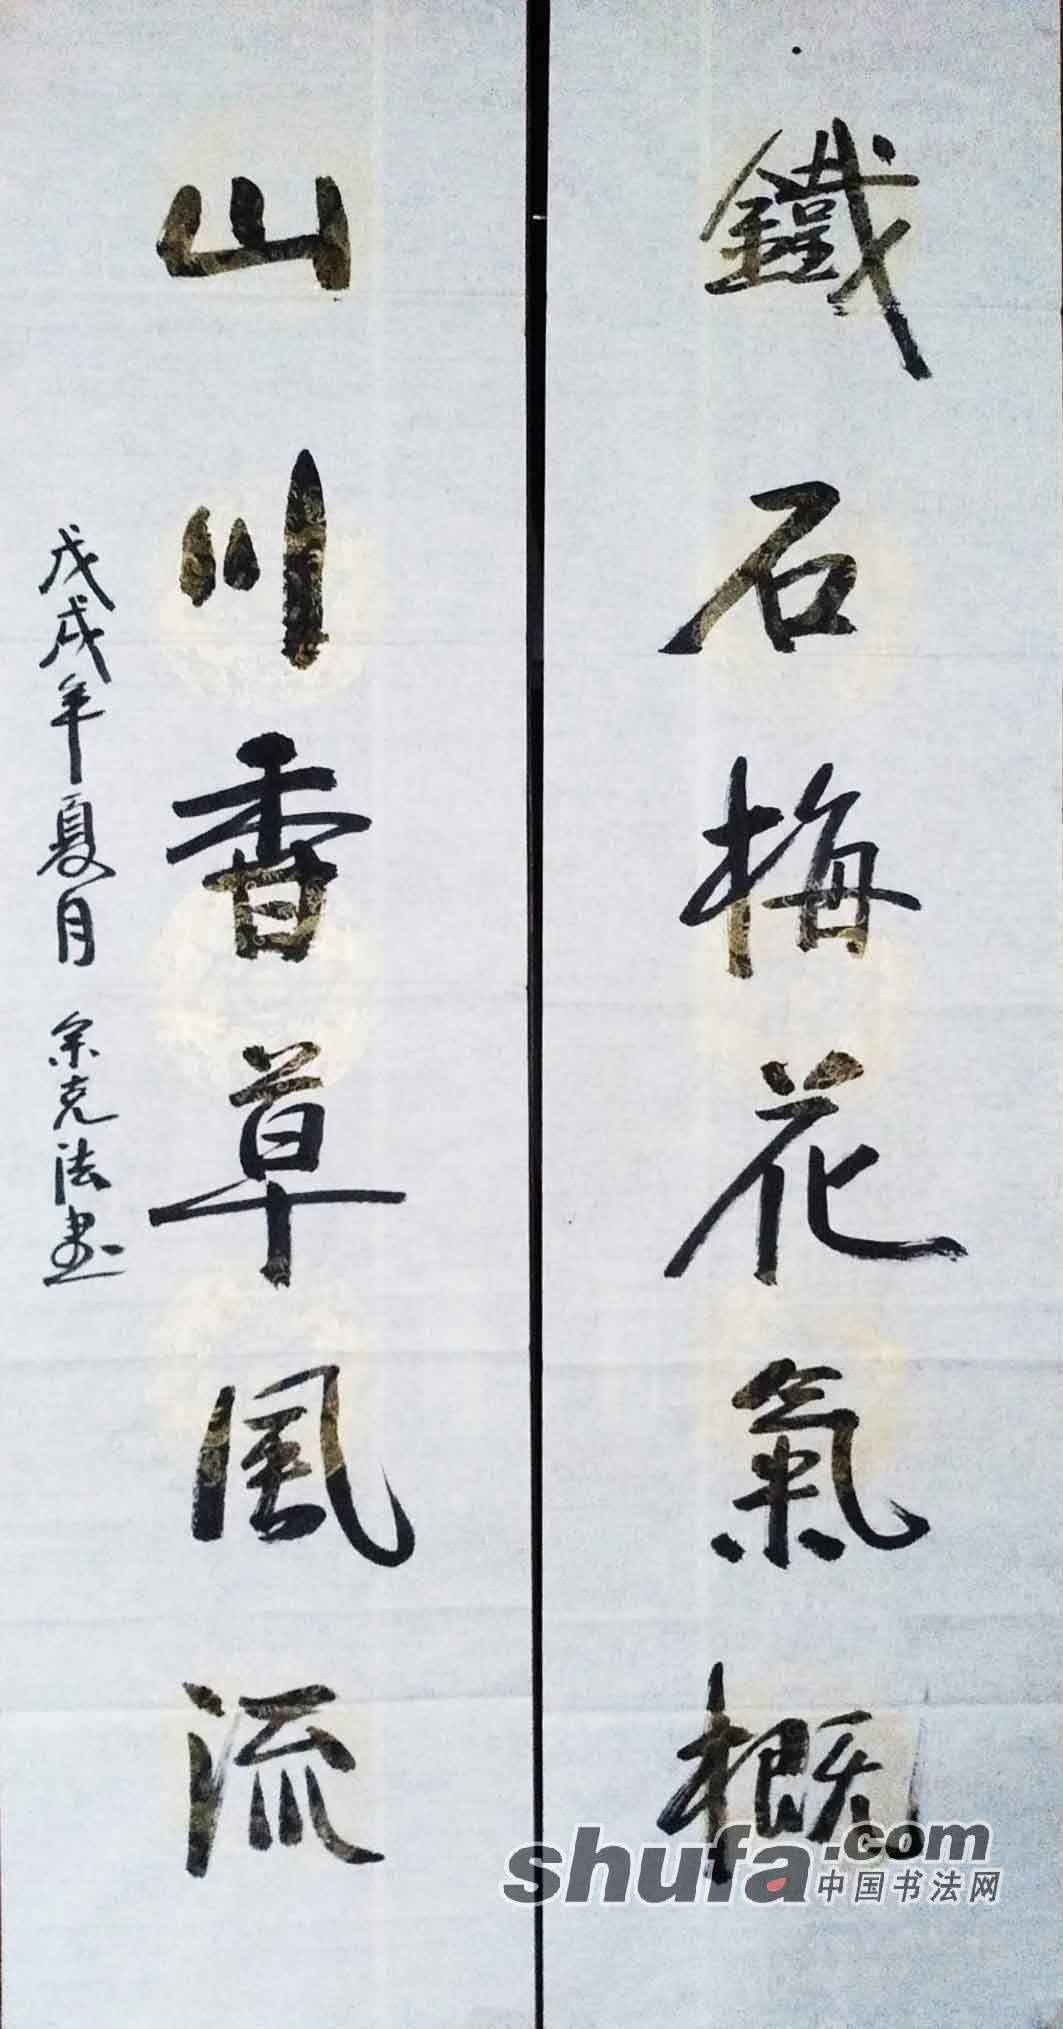 鐵石梅花氣概
山川香草風流
戊戌年夏月 余克法书
shufa.com
中国书法网